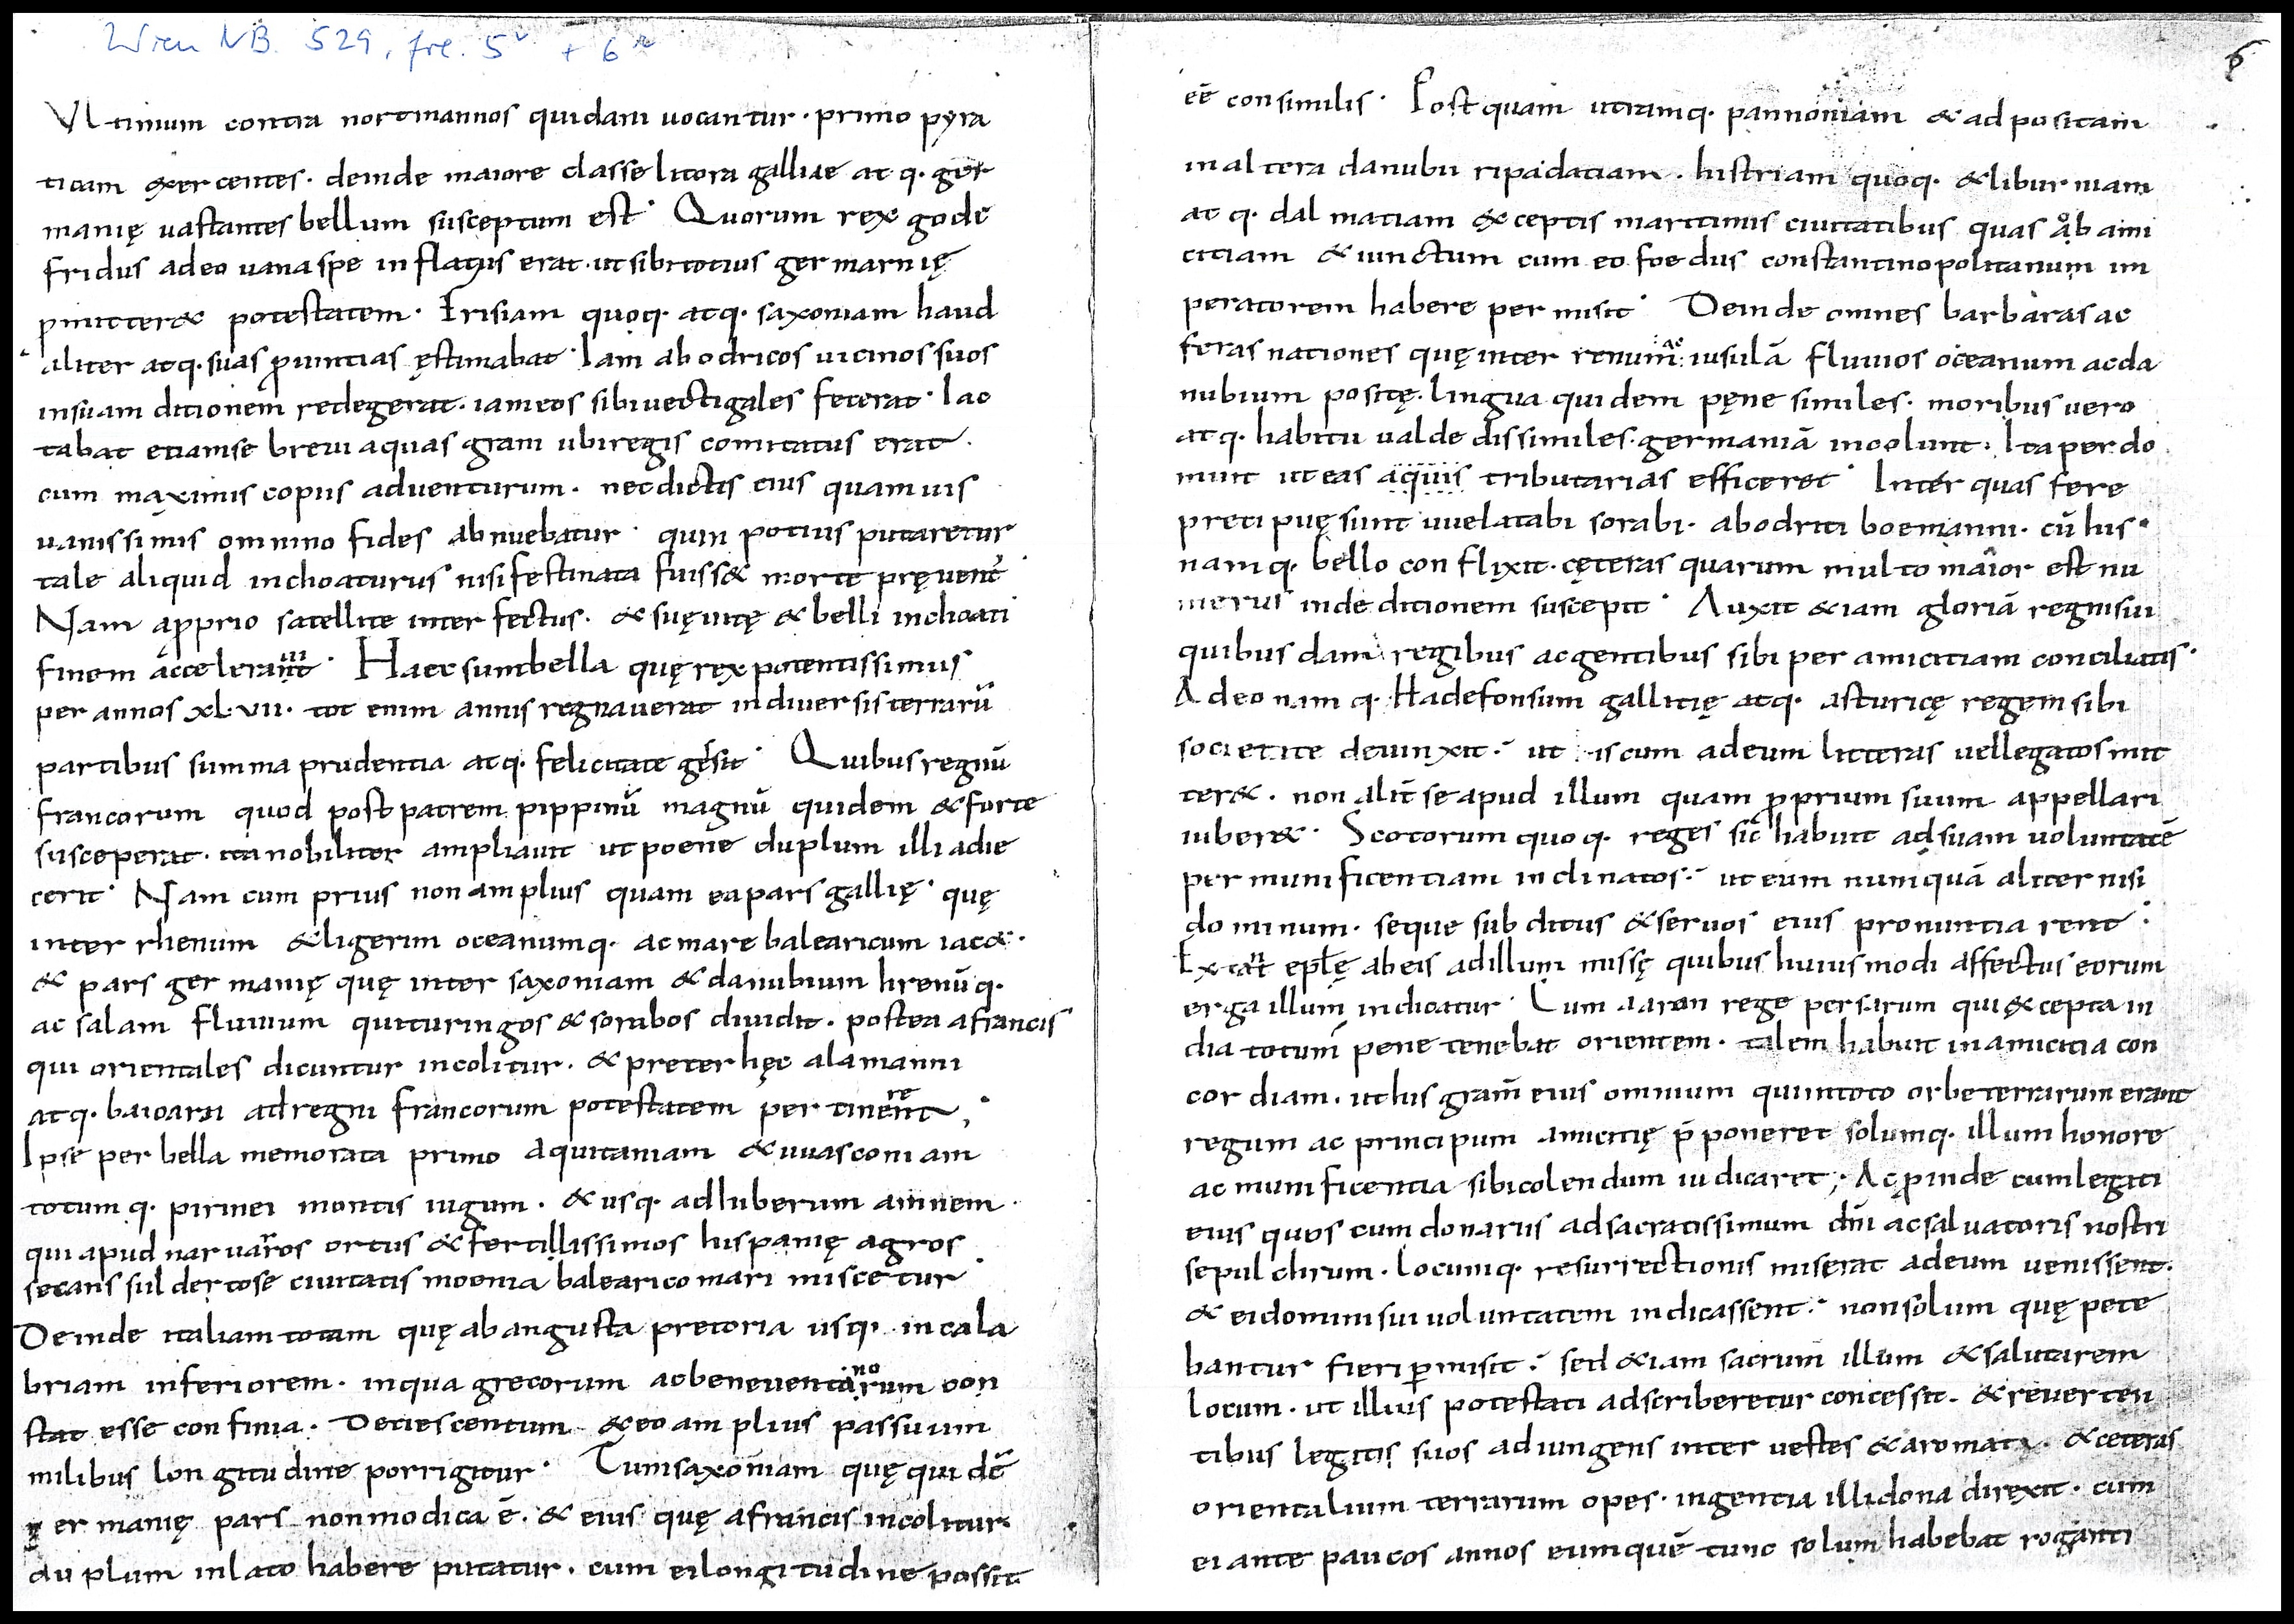 Wien NB. 529, fol. 5v + 6r
6
Vltimum contra nortmannos quidam uocantur · primo pyra
ticam exercentes · deinde maiore classe litora galliae at q· ger
manię uastantes bellum susceptum est · Quorum rex gode
fridus adeo uana spe inflatus erat · ut sibi totius germarnię
pmitteret potestatem · Frisiam quoq· atq· saxoniam haud
aliter atq· suas puintias ęstimabat · Iam abodricos uicinos suos
in suam ditionem redegerat · iam eos sibi uectigales fecerat · Iac
tabat etiam se breui aquas grani ubi regis comitatus erat ·
cum maximis copiis aduenturum · nec dictis eius quamuis
uanissimis omnino fides abnuebatur · quin potius putaretur
tale aliquid inchoaturus nisi festinata fuisset morte pręuent͛
Nam apprio satellite interfectus · & suę uitę & belli inchoati
finem acceleraꞃt · Haec sunt bella quę rex potentissimus
per annos XL·VII · tot enim annis regnauerat in diuersis terrarū
partibus summa prudentia atq· felicitate gessit · Quibus regnū
francorum quod post patrem pippinū magnū quidem & forte
susceperat · ita nobiliter ampliauit ut poene duplum illi adie
cerit · Nam cum prius non amplius quam ea pars gallię · quę
inter rhenum & ligerim oceanumq· ac mare balearicum iacet ·
& pars germanię quę inter saxoniam & danubium hrenūq·
ac salam fluuium qui turingos & sorabos diuidit · postea a francis
qui orientales dicuntur incolitur · & preter hęc alamanni
atq· baioarii ad regni francorum potestatem pertinerent ;
Ipse per bella memorata primo aquitaniam & uuasconiam
totumq· pirinei montis iugum · & usq· ad hiberum amnem ·
qui apud nauarros ortus & fertillissimos hispanię agros
secans sul dertose ciuitatis moenia balearico mari miscetur ·
Deinde italiam totam quę ab augusta pretoria usq· in cala
briam inferiorem · in qua grecorum ac beneuentanorum con
stat esse confinia · Decies centum & eo amplius passuum
milibus longitudine porrigitur · Tum saxoniam quę quidē
germanię pars non modica ē · & eius quę a francis incolitur
duplum in lato habere putatur · cum ei longitudine possit
eē consimilis · Postquam utramq· pannoniam & adpositam
in altera danubii ripa datiam · histriam quoq· & liburniam
atq· dalmatiam exceptis maritimis ciuitatibus quas ob ami
citiam & iunctum cum eo foedus constantinopolitanum im
peratorem habere permisit · Deinde omnes barbaras ac
feras nationes quę inter renum ac uisulā fluuios oceanum ac da
nubium positę · lingua quidem pęne similes · moribus uero
atq· habitu ualde dissimiles · germaniā incolunt · Ita perdo
muit ut eas aquis tributarias efficeret · Inter quas fere
precipuę sunt uuelatabi sorabi · abodriti boemanni · cū his ·
namq· bello conflixit · cęteras quarum multo maior est nu
merus in deditionem suscepit · Auxit etiam gloriā regni sui
quibusdam regibus ac gentibus sibi per amicitiam conciliatis ·
Adeo namq· Hadefonsum gallicię atq· asturicę regem sibi
societate deuinxit · ut is cum ad eum litteras uel legatos mit
teret · non alit͛ se apud illum quam pprium suum appellari
iuberet · Scotorum quoq· reges sic habuit ad suam uoluntatē
per munificentiam inclinatos · ut eum numquā aliter nisi
dominum · seque subditus & seruos eius pronuntiarent :
Extant eptę ab eis ad illum missę quibus huiusmodi affectus eorum
erga illum indicatur · Cum aaron rege persarum qui excepta in
dia totum pene tenebat orientem · talem habuit in amicitia con
cordiam · ut his gram̄ eius omnium qui in toto orbe terrarum erant
regum ac principum amicitię p̄poneret solumq· illum honore
ac munificentia sibi colendum iudicaret ; Ac pinde cum legati
eius quos cum donariis ad sacratissimum dn̄i ac saluatoris nostri
sepulchrum · locumq· resurrectionis miserat ad eum uenissent ·
& ei domini sui uoluntatem indicassent · non solum quę pete
bantur fieri pmisit · sed etiam sacrum illum & salutarem
locum · ut illius potestati adscriberetur concessit · & reuerten
tibus legatis suos adiungens inter uestes & aromata · & ceteras
orientalium terrarum opes · ingentia illi dona direxit · cum
ei ante paucos annos eum quē tunc solum habebat roganti